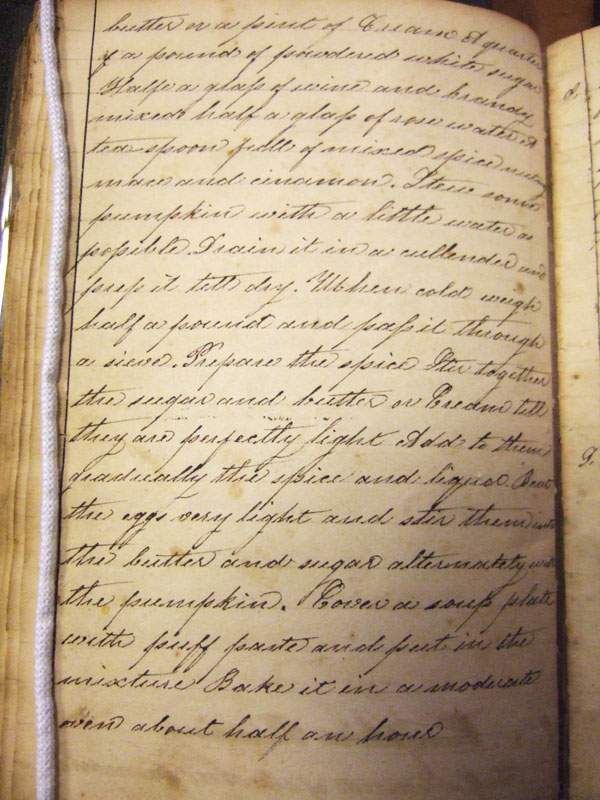 butter or a pint of Cream A quarter
of a pound of powdered white sugar
Halfe a glass of wine and brandy
mixed half a glass of rose water A
tea-spoon full of mixed spice
mace and cinamon. Stew some
pumpkin with a little water as
possible. Drain it in a cullender and
press it till dry. When cold weigh
half a pound and pass it through
a sieve. Prepare the spice Stir together
the sugar and butter or Cream till
they are perfectly light Add to them
gradually the spice and liquor. Beat
the eggs very light and stir them into
the butter and sugar alternately with
the pumpkin. Cover a soup plate
with puff paste and put in the
mixture Bake it in a moderate
oven about half an hour
d
9.